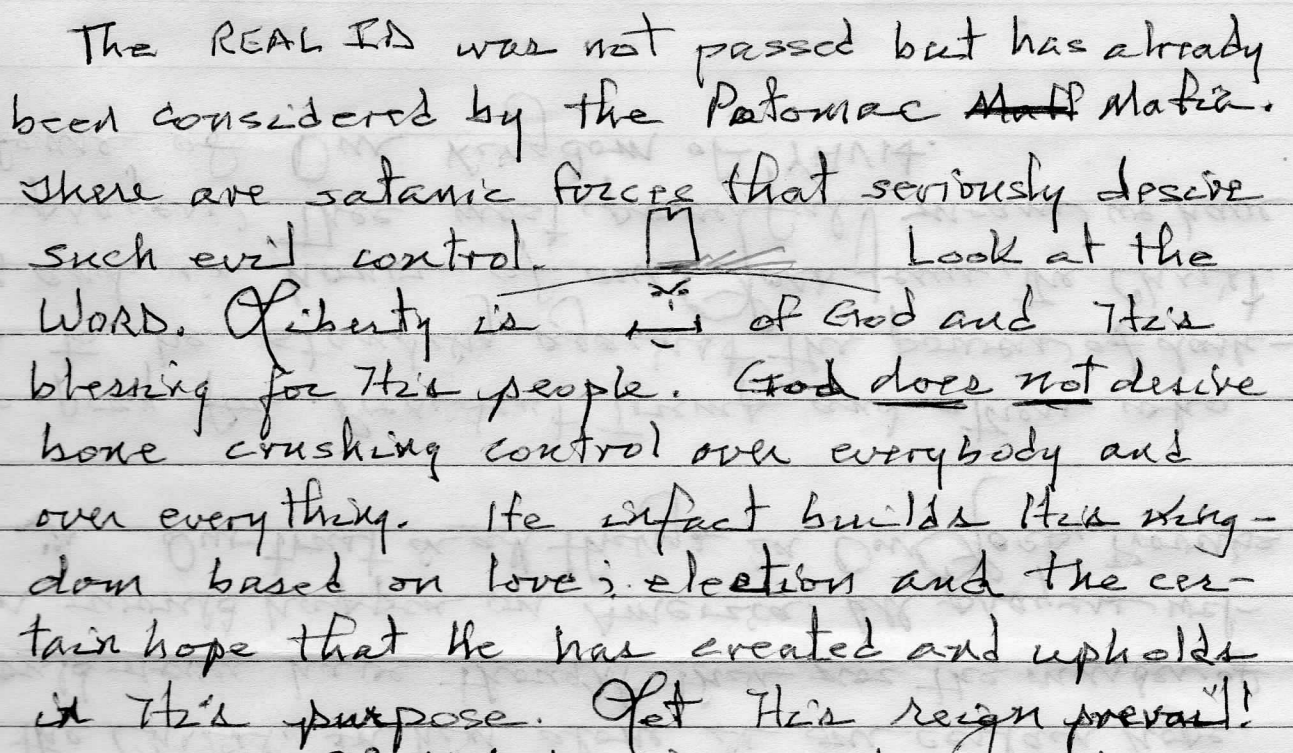 The REAL ID was not passed but has already
been considered by the Potomac Maff Mafia.
There are satanic forces that seriously desire
such evil control. Look at the
WORD. Liberty is of God and His
blessing for His people. God does not desire
bone crushing control over everybody and
over everything. He infact builds His king-
dom based on love; election and the cer-
tain hope that He has created and upholds
in His purpose. Let His reign prevail!